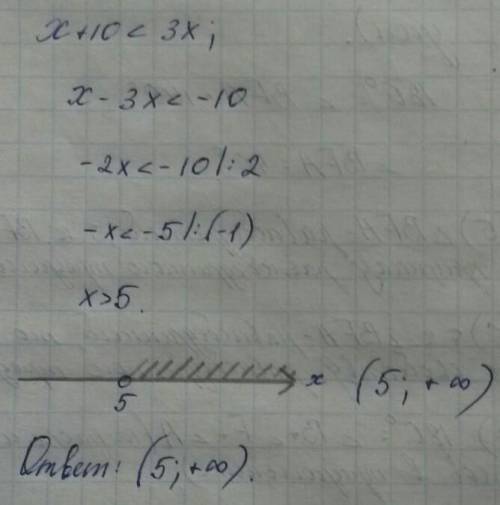 x+10 < 3x;
x - 3x < -10
-2x < -10 |: 2
-x < -5 |: (-1)
x > 5.
5 x (5; +∞)
Ответ: (5; +∞).